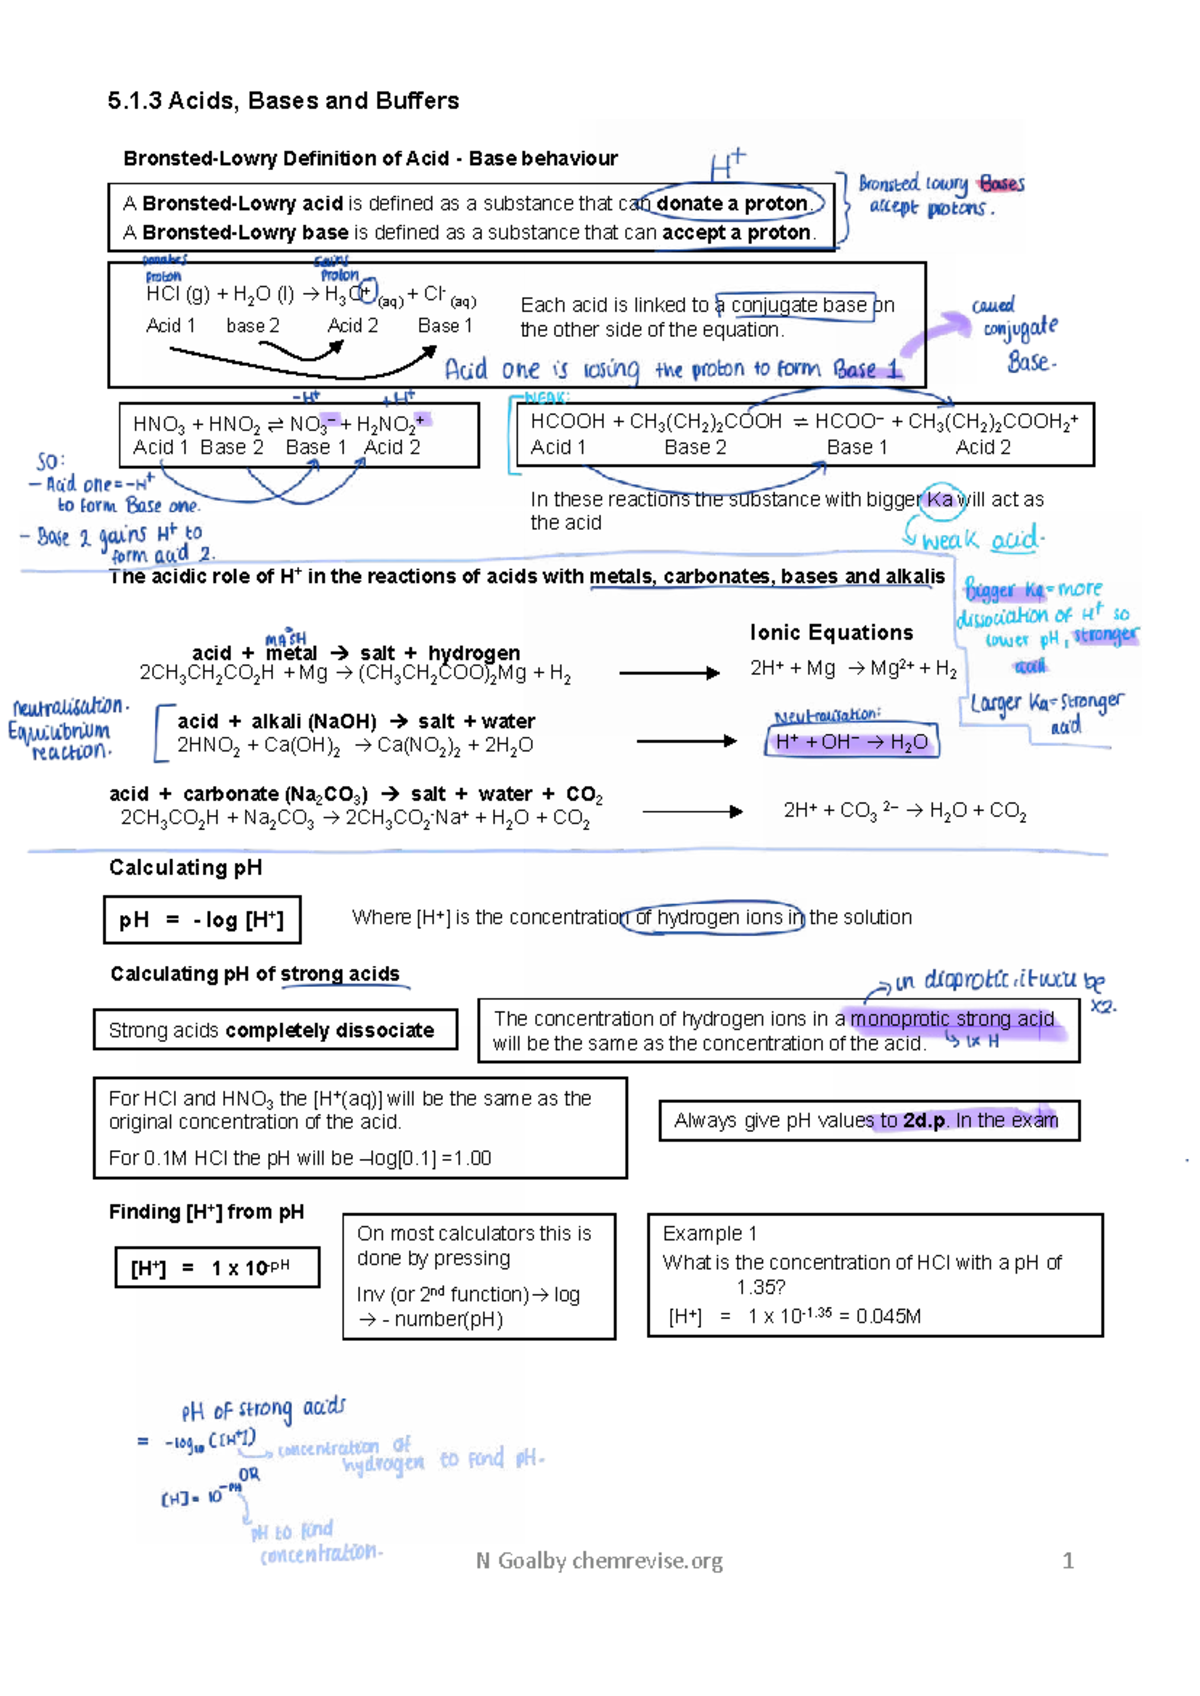 5.1.3 Acids, Bases and Buffers
Bronsted-Lowry Definition of Acid - Base behaviour
H⁺
A Bronsted-Lowry acid is defined as a substance that can donate a proton.
A Bronsted-Lowry base is defined as a substance that can accept a proton.
Bronsted lowry Bases
accept protons.
donates
proton
Gains
Proton
HCl (g) + H₂O (l) → H₃O⁺ (aq) + Cl⁻ (aq)
Acid 1 base 2 Acid 2 Base 1
Each acid is linked to a conjugate base on
the other side of the equation.
Acid one is losing the proton to form Base 1
called
conjugate
Base.
-H⁺ +H⁺
HNO₃ + HNO₂ ⇌ NO₃⁻ + H₂NO₂⁺
Acid 1 Base 2 Base 1 Acid 2
WEAK:
HCOOH + CH₃(CH₂)₂COOH ⇌ HCOO⁻ + CH₃(CH₂)₂COOH₂⁺
Acid 1 Base 2 Base 1 Acid 2
SO:
- Acid one = -H⁺
to form Base one.
- Base 2 gains H⁺ to
form acid 2.
In these reactions the substance with bigger Ka will act as
the acid
weak acid.
The acidic role of H⁺ in the reactions of acids with metals, carbonates, bases and alkalis
Bigger Ka = more
dissociation of H⁺ so
lower pH, stronger
acid
Larger Ka = Stronger
acid
Ionic Equations
MASH
acid + metal → salt + hydrogen
2CH₃CH₂CO₂H + Mg → (CH₃CH₂COO)₂Mg + H₂
2H⁺ + Mg → Mg²⁺ + H₂
neutralisation.
Equilibrium
reaction.
acid + alkali (NaOH) → salt + water
2HNO₂ + Ca(OH)₂ → Ca(NO₂)₂ + 2H₂O
Neutralisation:
H⁺ + OH⁻ → H₂O
acid + carbonate (Na₂CO₃) → salt + water + CO₂
2CH₃CO₂H + Na₂CO₃ → 2CH₃CO₂⁻Na⁺ + H₂O + CO₂
2H⁺ + CO₃²⁻ → H₂O + CO₂
Calculating pH
pH = - log [H⁺]
Where [H⁺] is the concentration of hydrogen ions in the solution
Calculating pH of strong acids
in diaprotic, it will be
x2.
Strong acids completely dissociate
The concentration of hydrogen ions in a monoprotic strong acid
will be the same as the concentration of the acid.
1x H
For HCl and HNO₃ the [H⁺(aq)] will be the same as the
original concentration of the acid.
For 0.1M HCl the pH will be –log[0.1] =1.00
Always give pH values to 2d.p. In the exam
Finding [H⁺] from pH
[H⁺] = 1 x 10⁻ᵖᴴ
On most calculators this is
done by pressing
Inv (or 2ⁿᵈ function)→ log
→ - number(pH)
Example 1
What is the concentration of HCl with a pH of
1.35?
[H⁺] = 1 x 10⁻¹·³⁵ = 0.045M
pH of strong acids
= -log₁₀ ([H⁺])
concentration of
hydrogen to find pH.
OR
[H] = 10⁻ᵖᴴ
pH to find
concentration.
N Goalby chemrevise.org 1